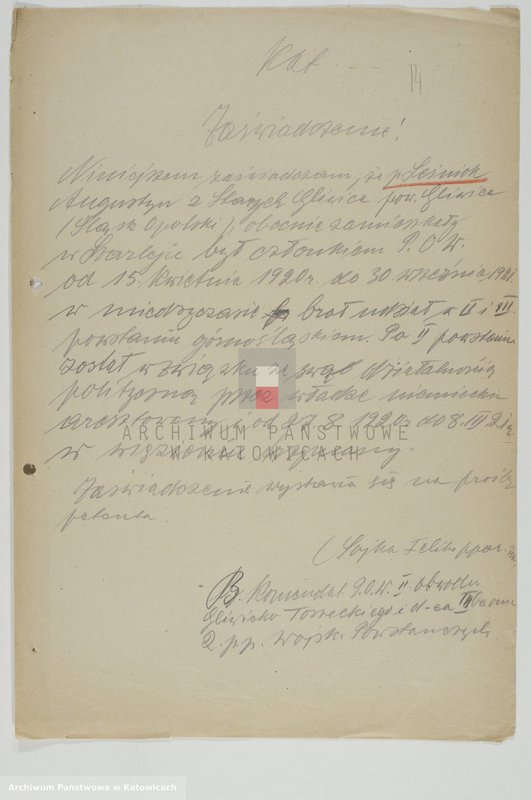 Kat
14.
Zaświadczenie!
Niniejszem zaświadczam, że p. Leśniok
Augustyn z Starych Gliwic pow. Gliwice
/Śląsk Opolski/ obecnie zamieszkały
w Szarleju był członkiem P.O.W.
od 15. kwietnia 1920r. do 30 września 1921.
w międzyczasie brał udział w II i III
powstaniu górnośląskiem. Po II powstaniu
został w związku ze swą działalnością
polityczną przez władze niemieckie
aresztowany i od 27.8.1920r do 8.III 21r
w więzieniu
Zaświadczenie wystawia się na prośbę
petenta
(Sojka Feliks ppor.
B. Komendant P.O.W. II. obwodu
Gliwicko Toszeckiego i d-ca III baonu
2. pp. Wojsk Powstańczych
ARCHIWUM PAŃSTWOWE
W KATOWICACH
Archiwum Państwowe w Katowicach